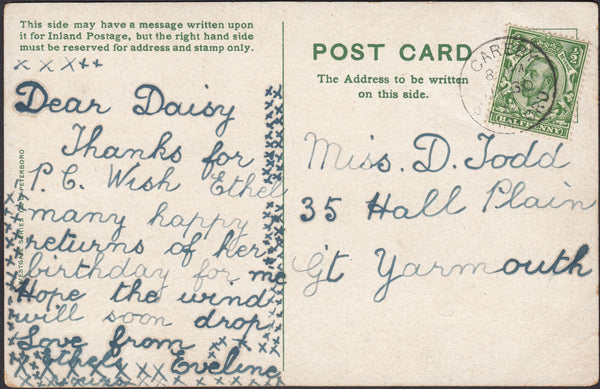 This side may have a message written upon
it for Inland Postage, but the right hand side
must be reserved for address and stamp only.
x x x x x
Dear Daisy
Thanks for
P.C. Wish Ethel
many happy
returns of her
birthday for me
Hope the wind
will soon drop
Love from
Ethels Eveline
POST CARD
The Address to be written
on this side.
HALFPENNY
Miss. D. Todd
35 Hall Plain
Gt Yarmouth
PETERBORO